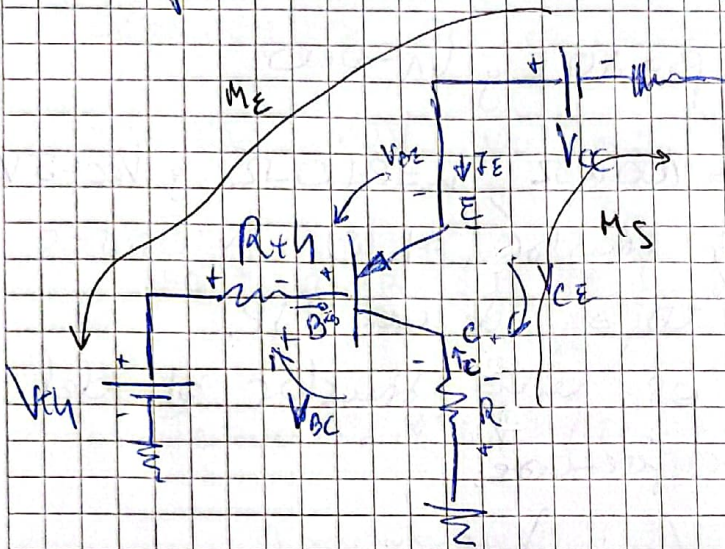 ME
+ -
VCC
VBE
IE
-
E
MS
Rth
+ - +
B
VCE
+
C +
-
IC
-
+
Vth
-
VBC
R
+